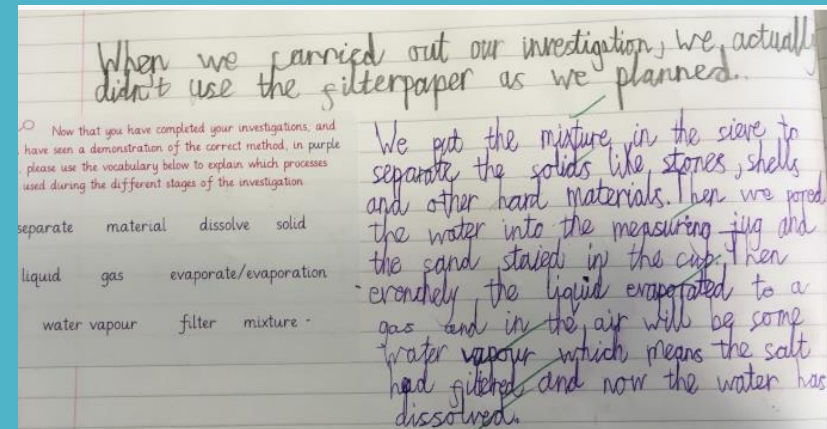 When we carried out our investigation, we, actually
didn't use the filterpaper as we planned..
Now that you have completed your investigations, and
have seen a demonstration of the correct method, in purple
please use the vocabulary below to explain which processes
used during the different stages of the investigation
separate material dissolve solid
liquid gas evaporate/evaporation
water vapour filter mixture
We put the mixture in the sieve to
separate the solids like, stones, shells
and other hard materials. Then we pored
the water into the measuring jug and
the sand staied in the cup. Then
evenchely, the liquid evaporated to a
gas and in the air will be some
water vapour which means the salt
had filtered and now the water has
dissolved.